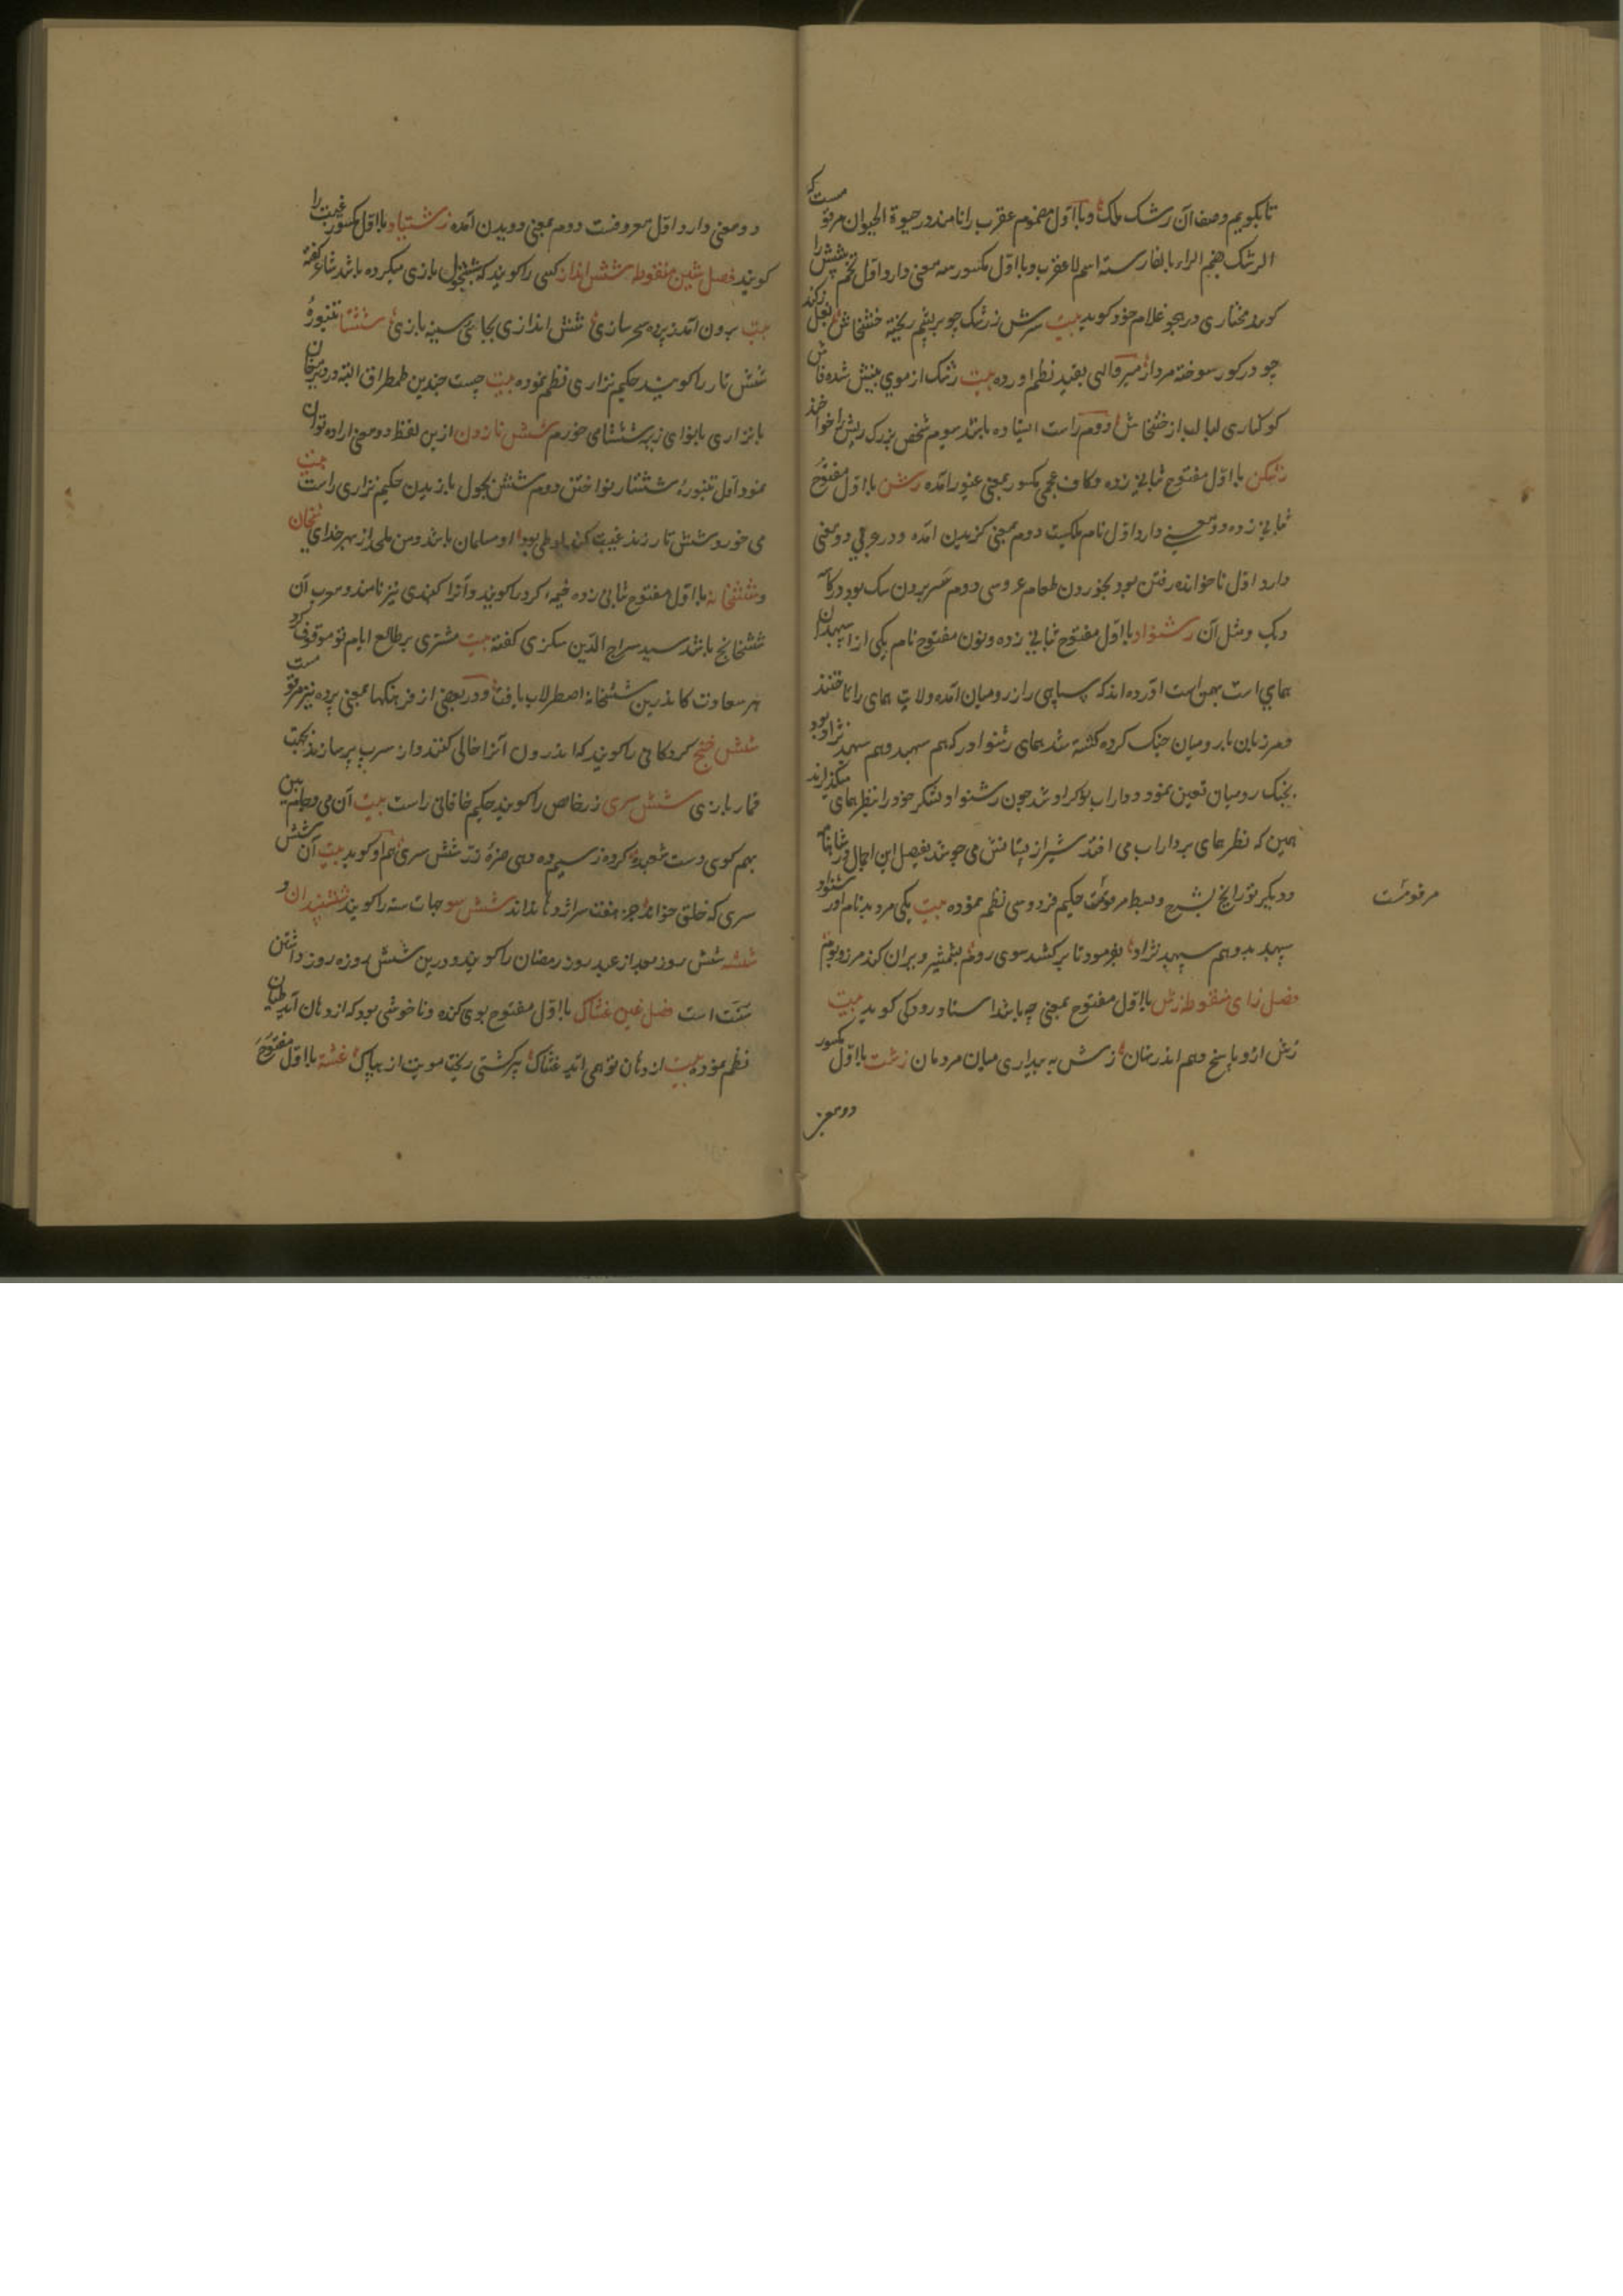 تا بگویم وصف آن رشک ملک و با اول مضموم عقرب را نامند در حیوة الحیوان مرقومست که
الرشک بضم الراء بالفارسیة اسم لاعقرب و با اول مکسور سه معنی دارد اول تخم شپش را
گویند مختاری در هجو غلام خود گوید بیت سرش ز رشک چو بر پشم ریخته خشخاش بغل
چو در گور سوخته مردار میر فالی بقید نظم اورده بیت رشک از موی
کوکناری لبالب از خشخاش دوم راست ایستاده باشد سیوم شخص بزرک ریش را خوانند
رشکن با اول مفتوح بثانی زده و کاف عجمی مکسور بمعنی غیور آمده رشن با اول مفتوح
بثانی زده دو معنی دارد اول نام ملکیست دوم بمعنی گزیدن آمده و در عربی دو معنی
دارد اول ناخوانده رفتن بود بخوردن طعام عروسی دوم سر بردن سک بود در کاسه
دیک و مثل آن رشنواد با اول مفتوح بثانی زده و نون مفتوح نام یکی از سپهبدان
همای است بهمن است آورده اند که سپاهی را از رومیان آمده ولایت همای را تاختند
و مرزبان با رومیان جنک کرده کشته شد همای رشنواد را که هم سپهبد و هم سپهبد نژاد بود
بجنک رومیان تعین نمود و داراب نوکر او شد چون رشنواد لشکر خود را بنظر همای میگذراند
همین که نظر همای بر داراب می افتد شیر از پستانش می جوشد تفصیل این اجمال در شاهنامه
و دیگر تواریخ بشرح و بسط مرقومست حکیم فردوسی نظم نموده بیت یکی مرد بد نام او رشنواد
سپهبد بد و هم سپهبد نژاد بفرمود تا بر کشد سوی روم بشمشیر ویران کند مرز و بوم
فصل زای منقوطه زش با اول مفتوح بمعنی چه باشد استاد رودکی گوید بیت
زش ازو پاسخ دهم اندر نهان زش به بیداری میان مردمان زشت با اول مکسور
دو معنی
مرقومست
دو معنی دارد اول معروفست دوم بمعنی دویدن آمده زشتیاد با اول مکسور غیبت را
گویند فصل شین منقوطه شش انداز کسی را گویند که بشش بجول بازی میکرده باشد شاعر گفته
بیت برون آمد ز پرده سحر سازی شش اندازی بجای شیشه بازی ششتا تنبوره
شش تار را گویند حکیم نزاری نظم نموده بیت چیست چندین طمطراق
با نزاری بانوای زیر ششتا می خورم شش تا زدن ازین لفظ دو معنی اراده توان
نمود اول تنبوره ششتار نواختن دوم شش بجول بازیدن حکیم نزاری راست بیت
می خورد شش تا زند غیبت کند لوطی بود او مسلمان باشد و من ملحد از بهر خدای
و ششخانه با اول مفتوح بثانی زده خیمه گرد را گویند و آنرا گنبدی نیز نامند و معرب آن
ششخانج باشد سید سراج الدین سکزی گفته بیت مشتری بر طالع ایام تو موقوف کرد
هر سعادت کاندرین ششخانه اصطرلاب یافت و در بعضی از فرهنگها بمعنی پرده نیز مرقومست
شش خنج گردکانی را گویند که اندرون آنرا خالی کنند و از سرب پر سازند بجهت
قمار بازی شش سری زر خاص را گویند حکیم خاقانی راست بیت آن می و جام بین
بهم گوی دست شعبده کرده ز سیم ده دهی صره زر شش سری هم او گوید بیت آن شش
سری که خلق خواند جز هفت سر اژدها نداند شش سو جهات سته را گویند
ششه شش روز بعد از عید روز رمضان را گویند و درین شش روزه روزه داشتن
سنت است فصل غین غشاک با اول مفتوح بوی گنده و ناخوشی بود که از دهان آید طیان
نظم نموده بیت از دهان تو همی آید غشاک پیر گشتی ریخت مویت از هباک غشته با اول مفتوح